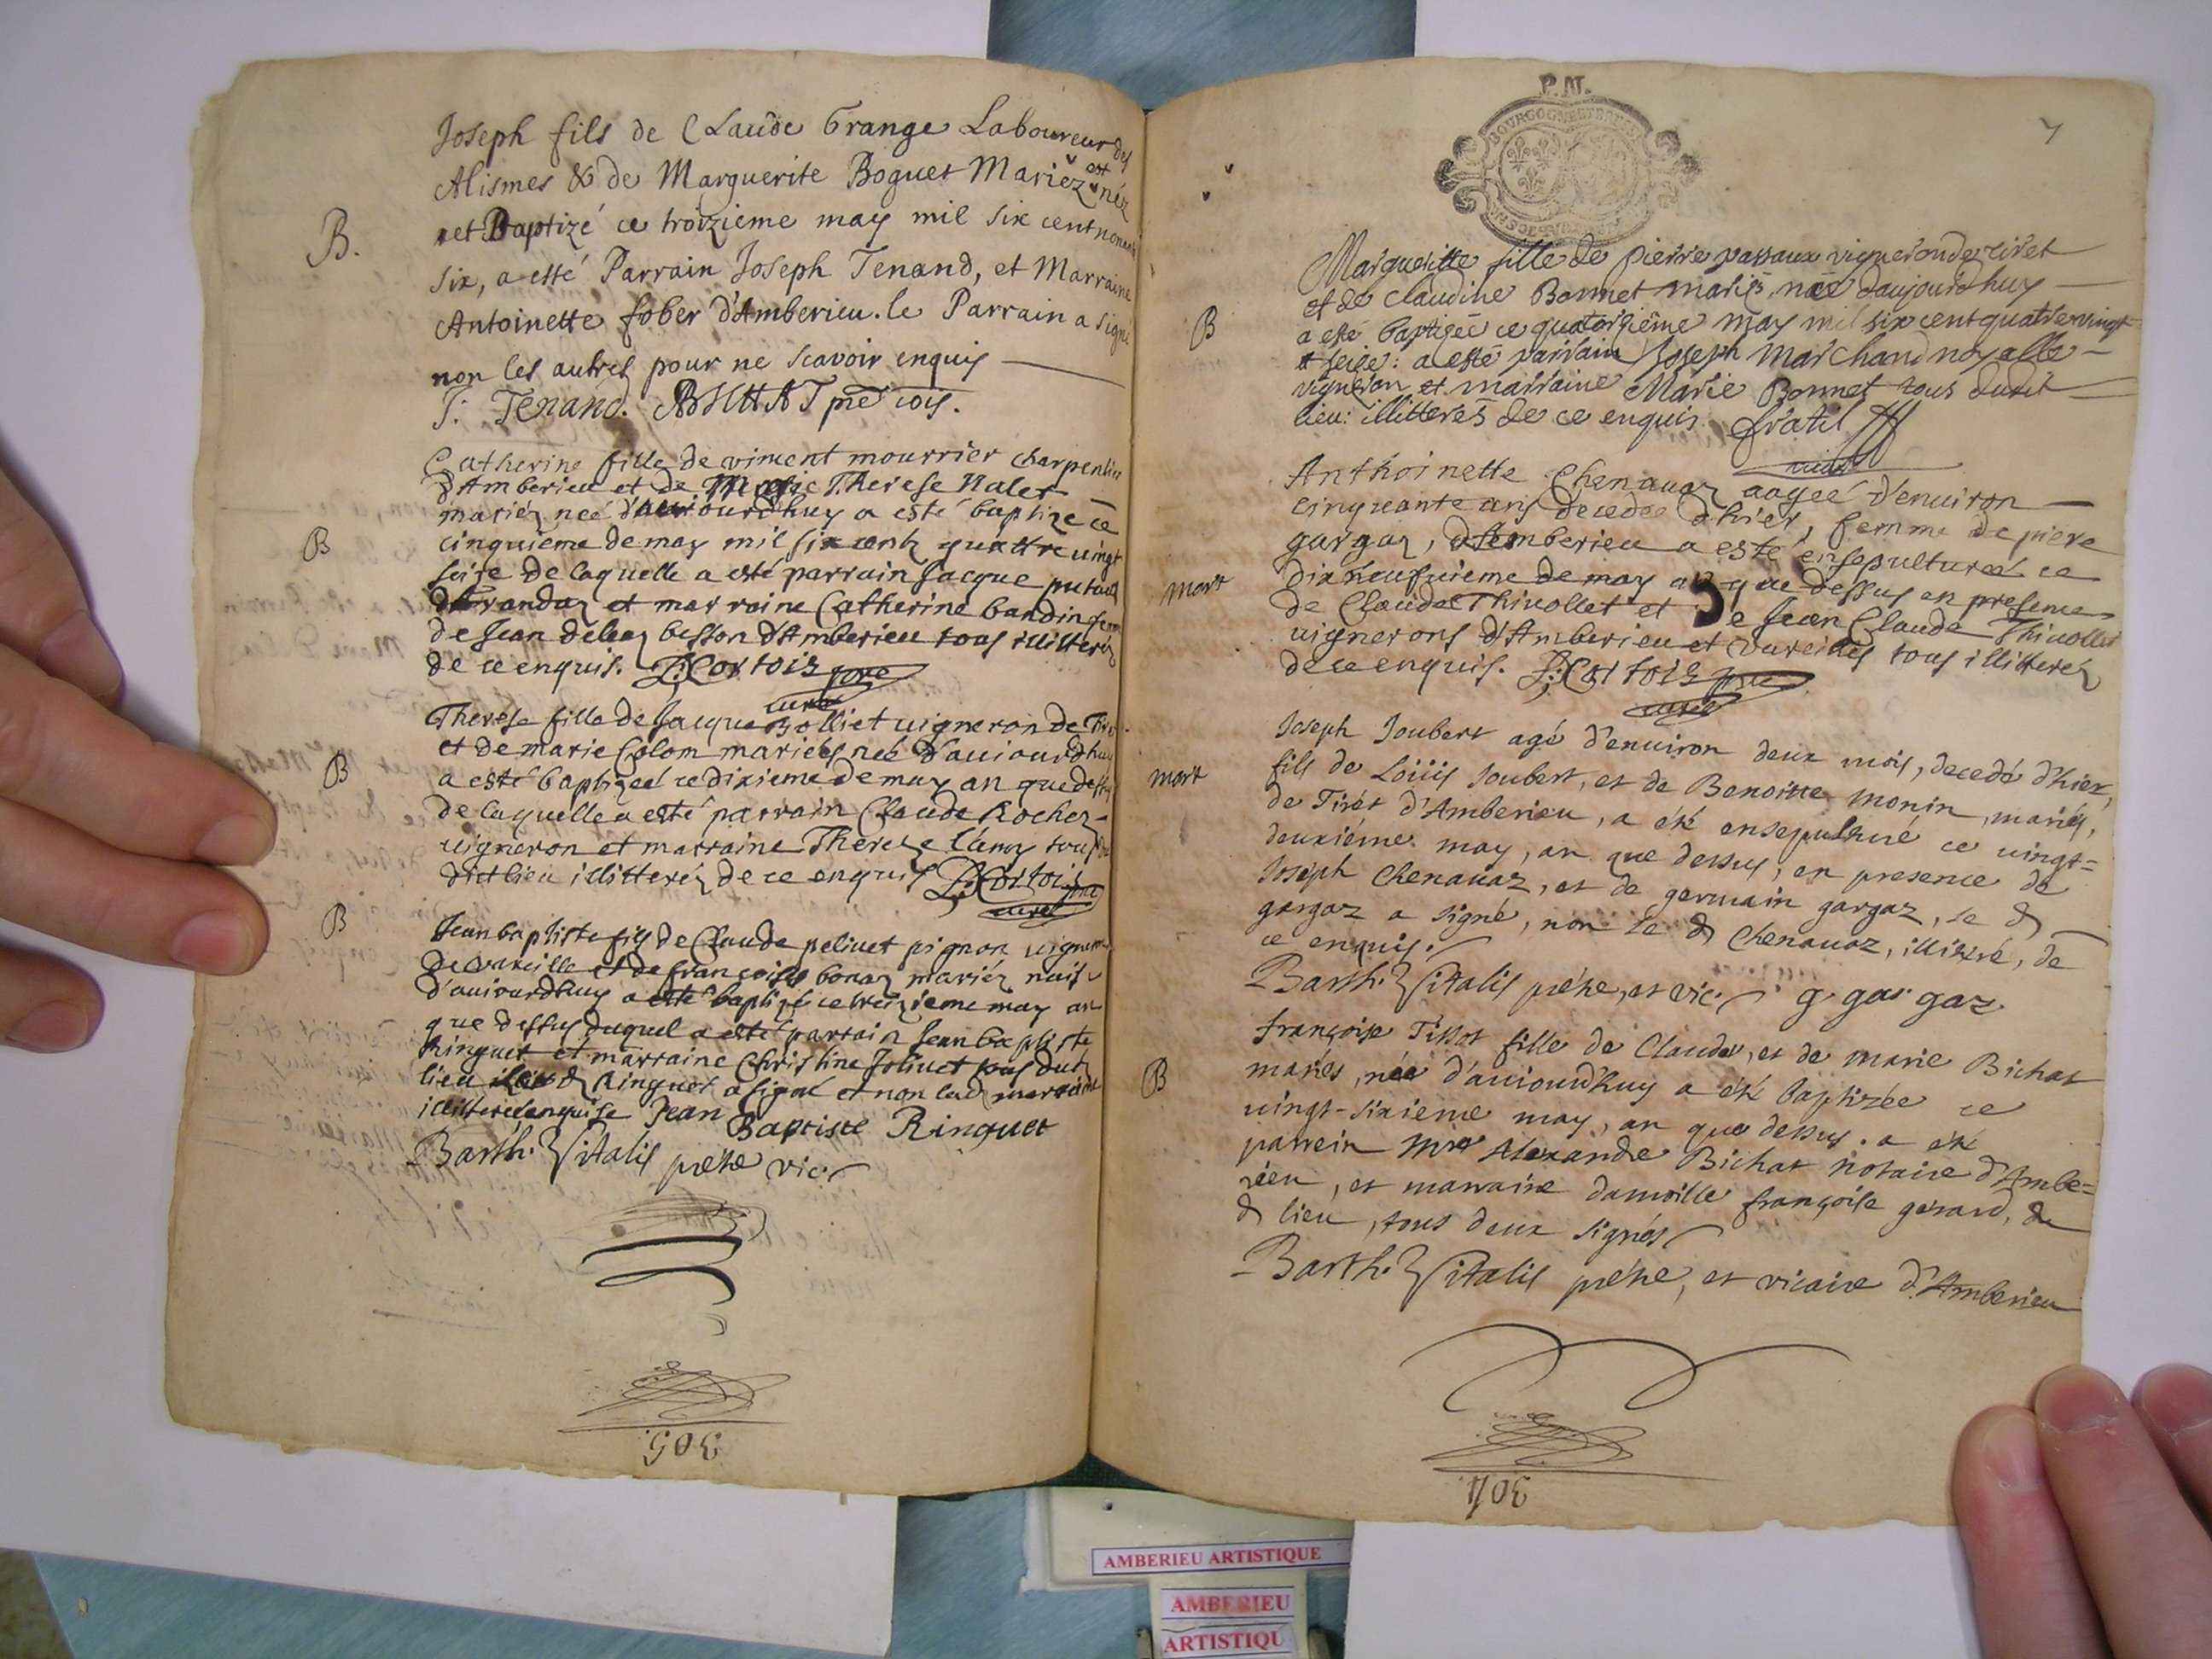 Joseph fils de Claude Grange Laboureur des
Alismes & de Marguerite Boguet Mariéz est néz
et Baptizé ce troizieme may mil six cent nonante
B.
six, a esté Parrain Joseph Tenand, et Marraine
Antoinette fober d'Amberieu. le Parrain a signé
non les autres pour ne scavoir enquis
J: Tenand.
Catherine fille de viment mourrier charpentier
d'Amberieu et de Marie Therese Nalet
mariéz neé d'aujourdhuy a esté baptize ce
B
cinquieme de may mil six cents quattre uingt
seize de laquelle a esté parrain Jacque
et marraine Catherine bandin femme
de Jean besson d'Amberieu tous illitteréz
de ce enquis. P: Cortois pbre
curé
Therese fille de Jacque Bolliet uigneron de Tiret
et de marie Colom mariées neé d'auiourdhuy
B
a esté baptizeé ce dixieme de may an que dessus
de laquelle a esté parrain Claude Rochez
uigneron et marraine Therese tous du
dict lieu illitteréz de ce enquis P: Cortois pbre
curé
B
Jean baptiste fils de Claude peliuet pignon uigneron
de vareille et de françoise bonaz mariéz nais
d'auiourdhuy a esté baptizé ce treizieme may an
que dessus duquel a esté parrain Jean baptiste
Ringuet et marraine Christine Joliuet tous dud
lieu led Ringuet a signé et non lad marraine
illitterée enquise Jean Baptiste Ringuet
Barth. Vitalis prêtre vic.
305
P.N.
BOURGOGNE ET BRESSE
7
Margueritte fille de pierre passaux vigneron de tiret
et de claudine Bonnet mariés, née daujourdhuy
B
a esté baptisée ce quatorzième may mil six cent quatre vingt
et seize: a esté parrain Joseph Marchand noyalle
vigneron et marraine Marie Bonnet tous dudit
lieu: illitterés de ce enquis.
Anthoinette Chenauaz aageé d'enuiron
cinqueante ans decedée d'hier, femme de piere
gargaz, d'Amberieu a esté ensepultureé ce
mort
dix neufuieme de may an que dessus en presence
de Claude Thiuollet et de Jean Claude Thiuollet
uignerons d'Amberieu et Vareilles tous illitteréz
de ce enquis. P: Cortois pbre
curé
Joseph Joubert agé d'enuiron deux mois, decedé d'hier,
mort
fils de Loüis Joubert, et de Benoitte Monin, mariés,
de Tiret d'Amberieu, a été ensepulturé ce uingt=
deuxiéme may, an que dessus, en presence de
Joseph Chenauaz, et de germain gargaz, le d
gargaz a signé, non le d Chenauaz, illitéré, de
ce enquis.
Barth. Vitalis prêtre, et vic. g. gargaz.
françoise Tissot fille de Claude, et de marie Bichat
B
mariés, née d'auiourd'huy a été baptizée ce
uingt-sixieme may, an que dessus. a été
parrein Mre Alexandre Bichat notaire d'Ambe=
rieu, et marraine damoille françoise gerard, du
d lieu, tous deux signés
Barth. Vitalis prêtre, et vicaire d'Amberieu
304
AMBERIEU ARTISTIQUE
AMBERIEU
ARTISTIQU